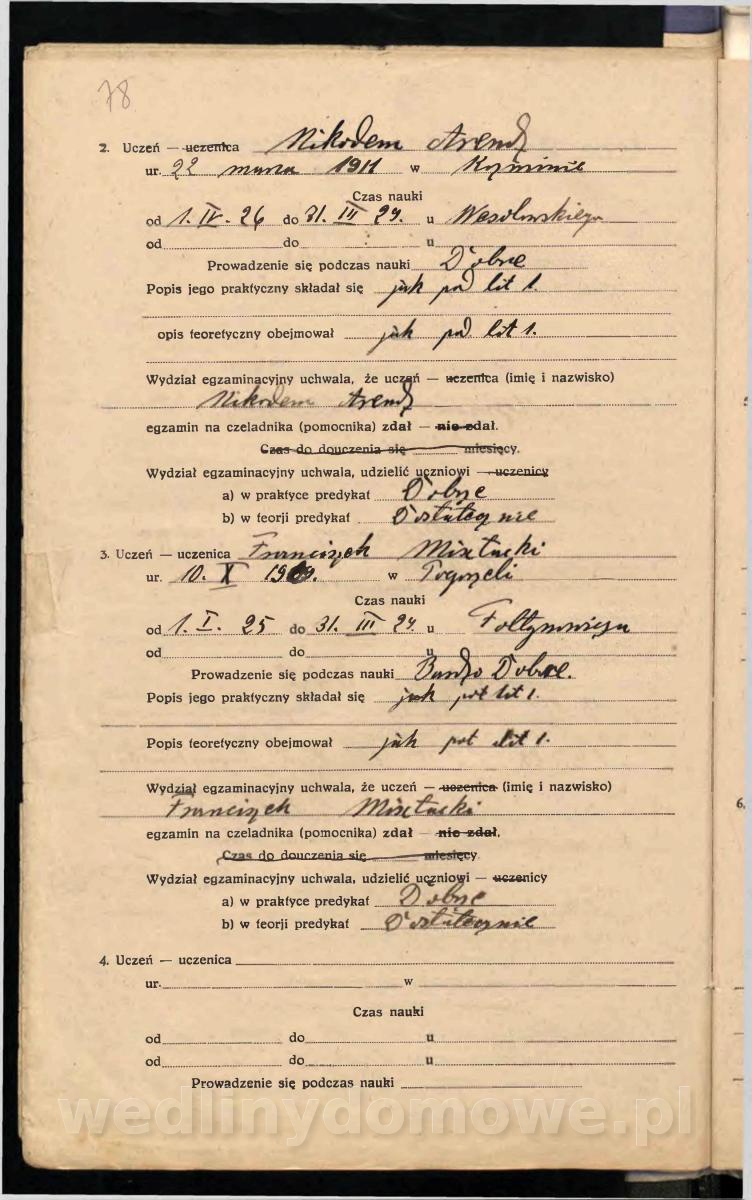 78
2. Uczeń — uczenica Nikodem Arendt
ur. 22 marca 1911 w Koźminie
Czas nauki
od 1. IV. 26 do 31. III 29. u Wesołowskiego
od do u
Prowadzenie się podczas nauki Dobre
Popis jego praktyczny składał się jak pod lit 1.
opis teoretyczny obejmował jak pod lit 1.
Wydział egzaminacyjny uchwala, że uczeń — uczenica (imię i nazwisko)
Nikodem Arendt
egzamin na czeladnika (pomocnika) zdał — nie zdał.
Czas do douczenia się miesięcy.
Wydział egzaminacyjny uchwala, udzielić uczniowi — uczenicy
a) w praktyce predykat Dobrze
b) w teorji predykat Dostatecznie
3. Uczeń — uczenica Franciszek
ur. 10. X 1909. w Pogorzeli
Czas nauki
od 1. I. 25 do 31. III 29 u
od do u
Prowadzenie się podczas nauki Bardzo Dobre.
Popis jego praktyczny składał się jak pot lit 1.
Popis teoretyczny obejmował jak pot lit 1.
Wydział egzaminacyjny uchwala, że uczeń — uczenica (imię i nazwisko)
Franciszek
egzamin na czeladnika (pomocnika) zdał — nie zdał.
Czas do douczenia się miesięcy
Wydział egzaminacyjny uchwala, udzielić uczniowi — uczenicy
a) w praktyce predykat Dobrze
b) w teorji predykat Dostatecznie
4. Uczeń — uczenica
ur. w
Czas nauki
od do u
od do u
Prowadzenie się podczas nauki
6.
wedlinydomowe.pl